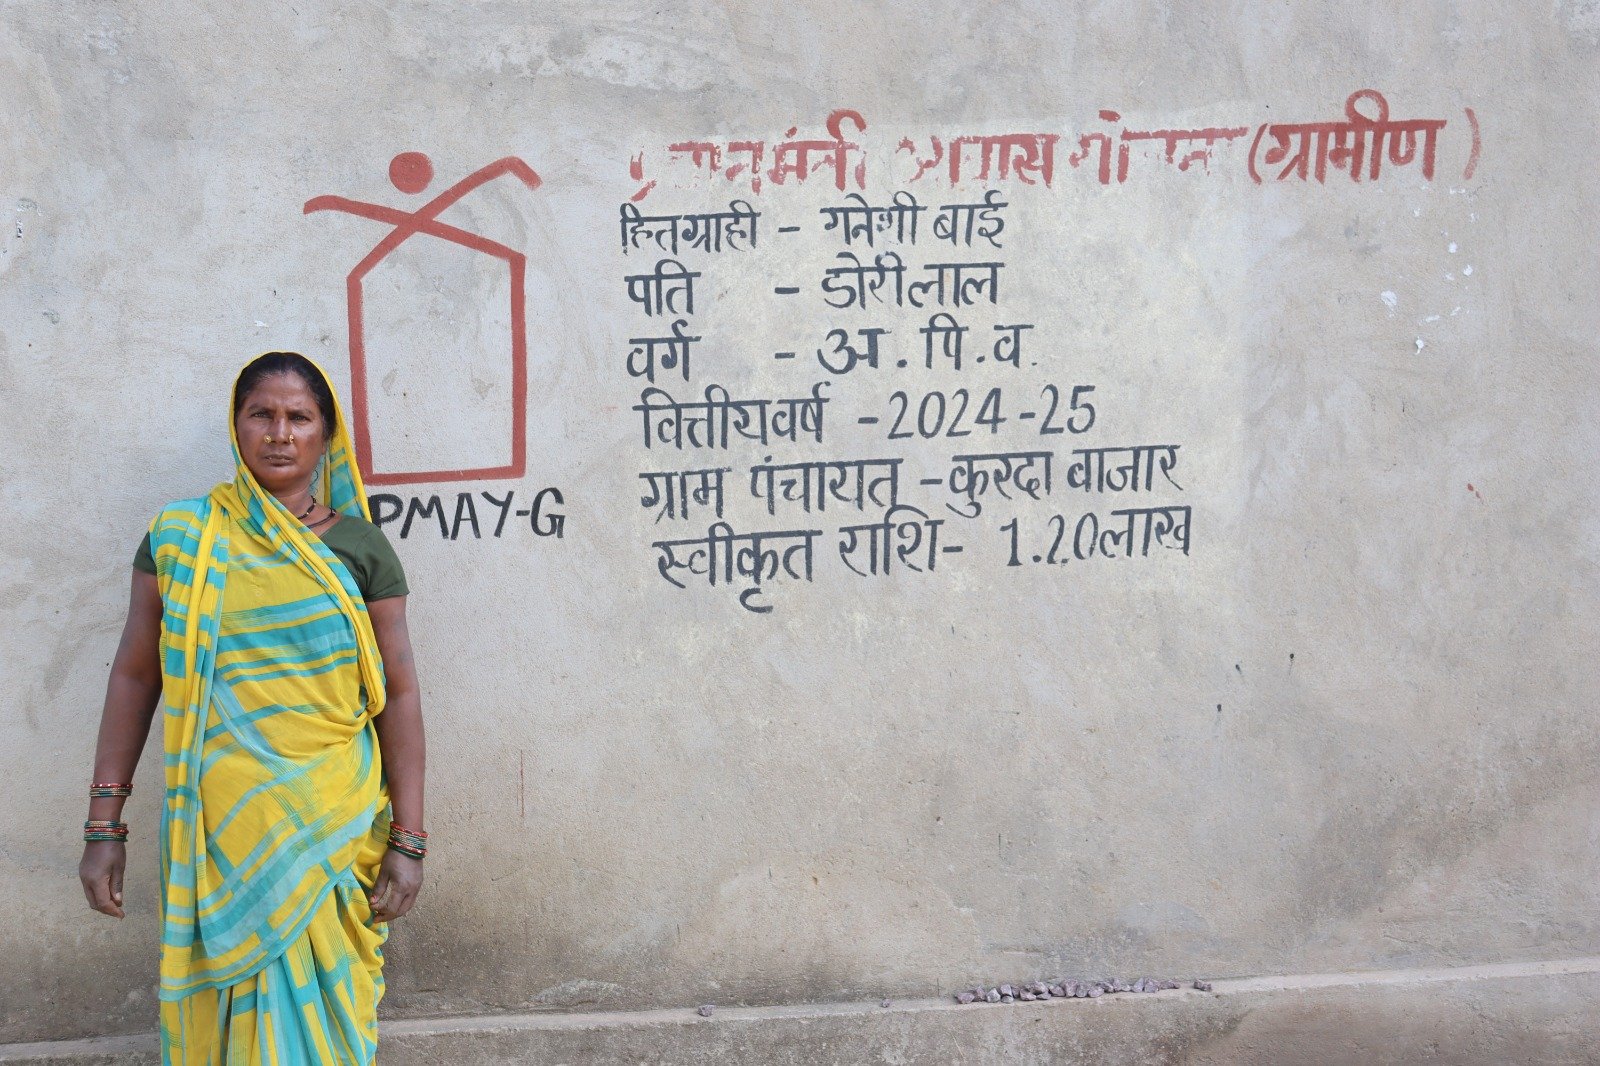 प्रधानमंत्री आवास योजना (ग्रामीण)
हितग्राही - गनेशी बाई
पति - डोरीलाल
वर्ग - अ.पि.व.
वित्तीयवर्ष - 2024-25
ग्राम पंचायत - कुरदा बाजार
स्वीकृत राशि - 1.20लाख
PMAY-G